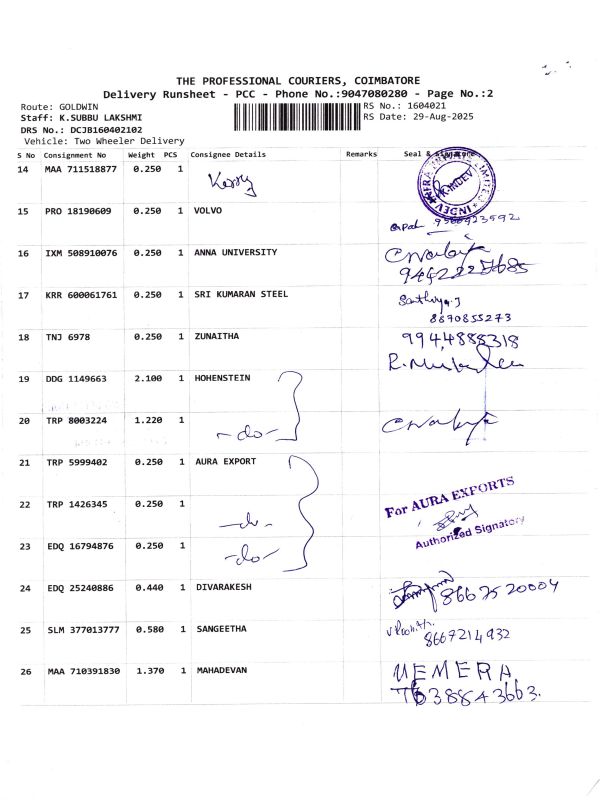 THE PROFESSIONAL COURIERS, COIMBATORE
Delivery Runsheet - PCC - Phone No.:9047080280 - Page No.:2
Route: GOLDWIN
RS No.: 1604021
Staff: K.SUBBU LAKSHMI
RS Date: 29-Aug-2025
DRS No.: DCJB160402102
Vehicle: Two Wheeler Delivery
S No Consignment No Weight PCS Consignee Details Remarks Seal & Signature
14 MAA 711518877 0.250 1
15 PRO 18190609 0.250 1 VOLVO
16 IXM 508910076 0.250 1 ANNA UNIVERSITY
17 KRR 600061761 0.250 1 SRI KUMARAN STEEL
8870855273
18 TNJ 6978 0.250 1 ZUNAITHA 9944888318
19 DDG 1149663 2.100 1 HOHENSTEIN
20 TRP 8003224 1.220 1
-do-
21 TRP 5999402 0.250 1 AURA EXPORT
22 TRP 1426345 0.250 1
For AURA EXPORTS
-do-
Authorized Signatory
23 EDQ 16794876 0.250 1
-do-
24 EDQ 25240886 0.440 1 DIVARAKESH 8667520004
25 SLM 377013777 0.580 1 SANGEETHA
8667214932
26 MAA 710391830 1.370 1 MAHADEVAN UEMERA
7638843663.